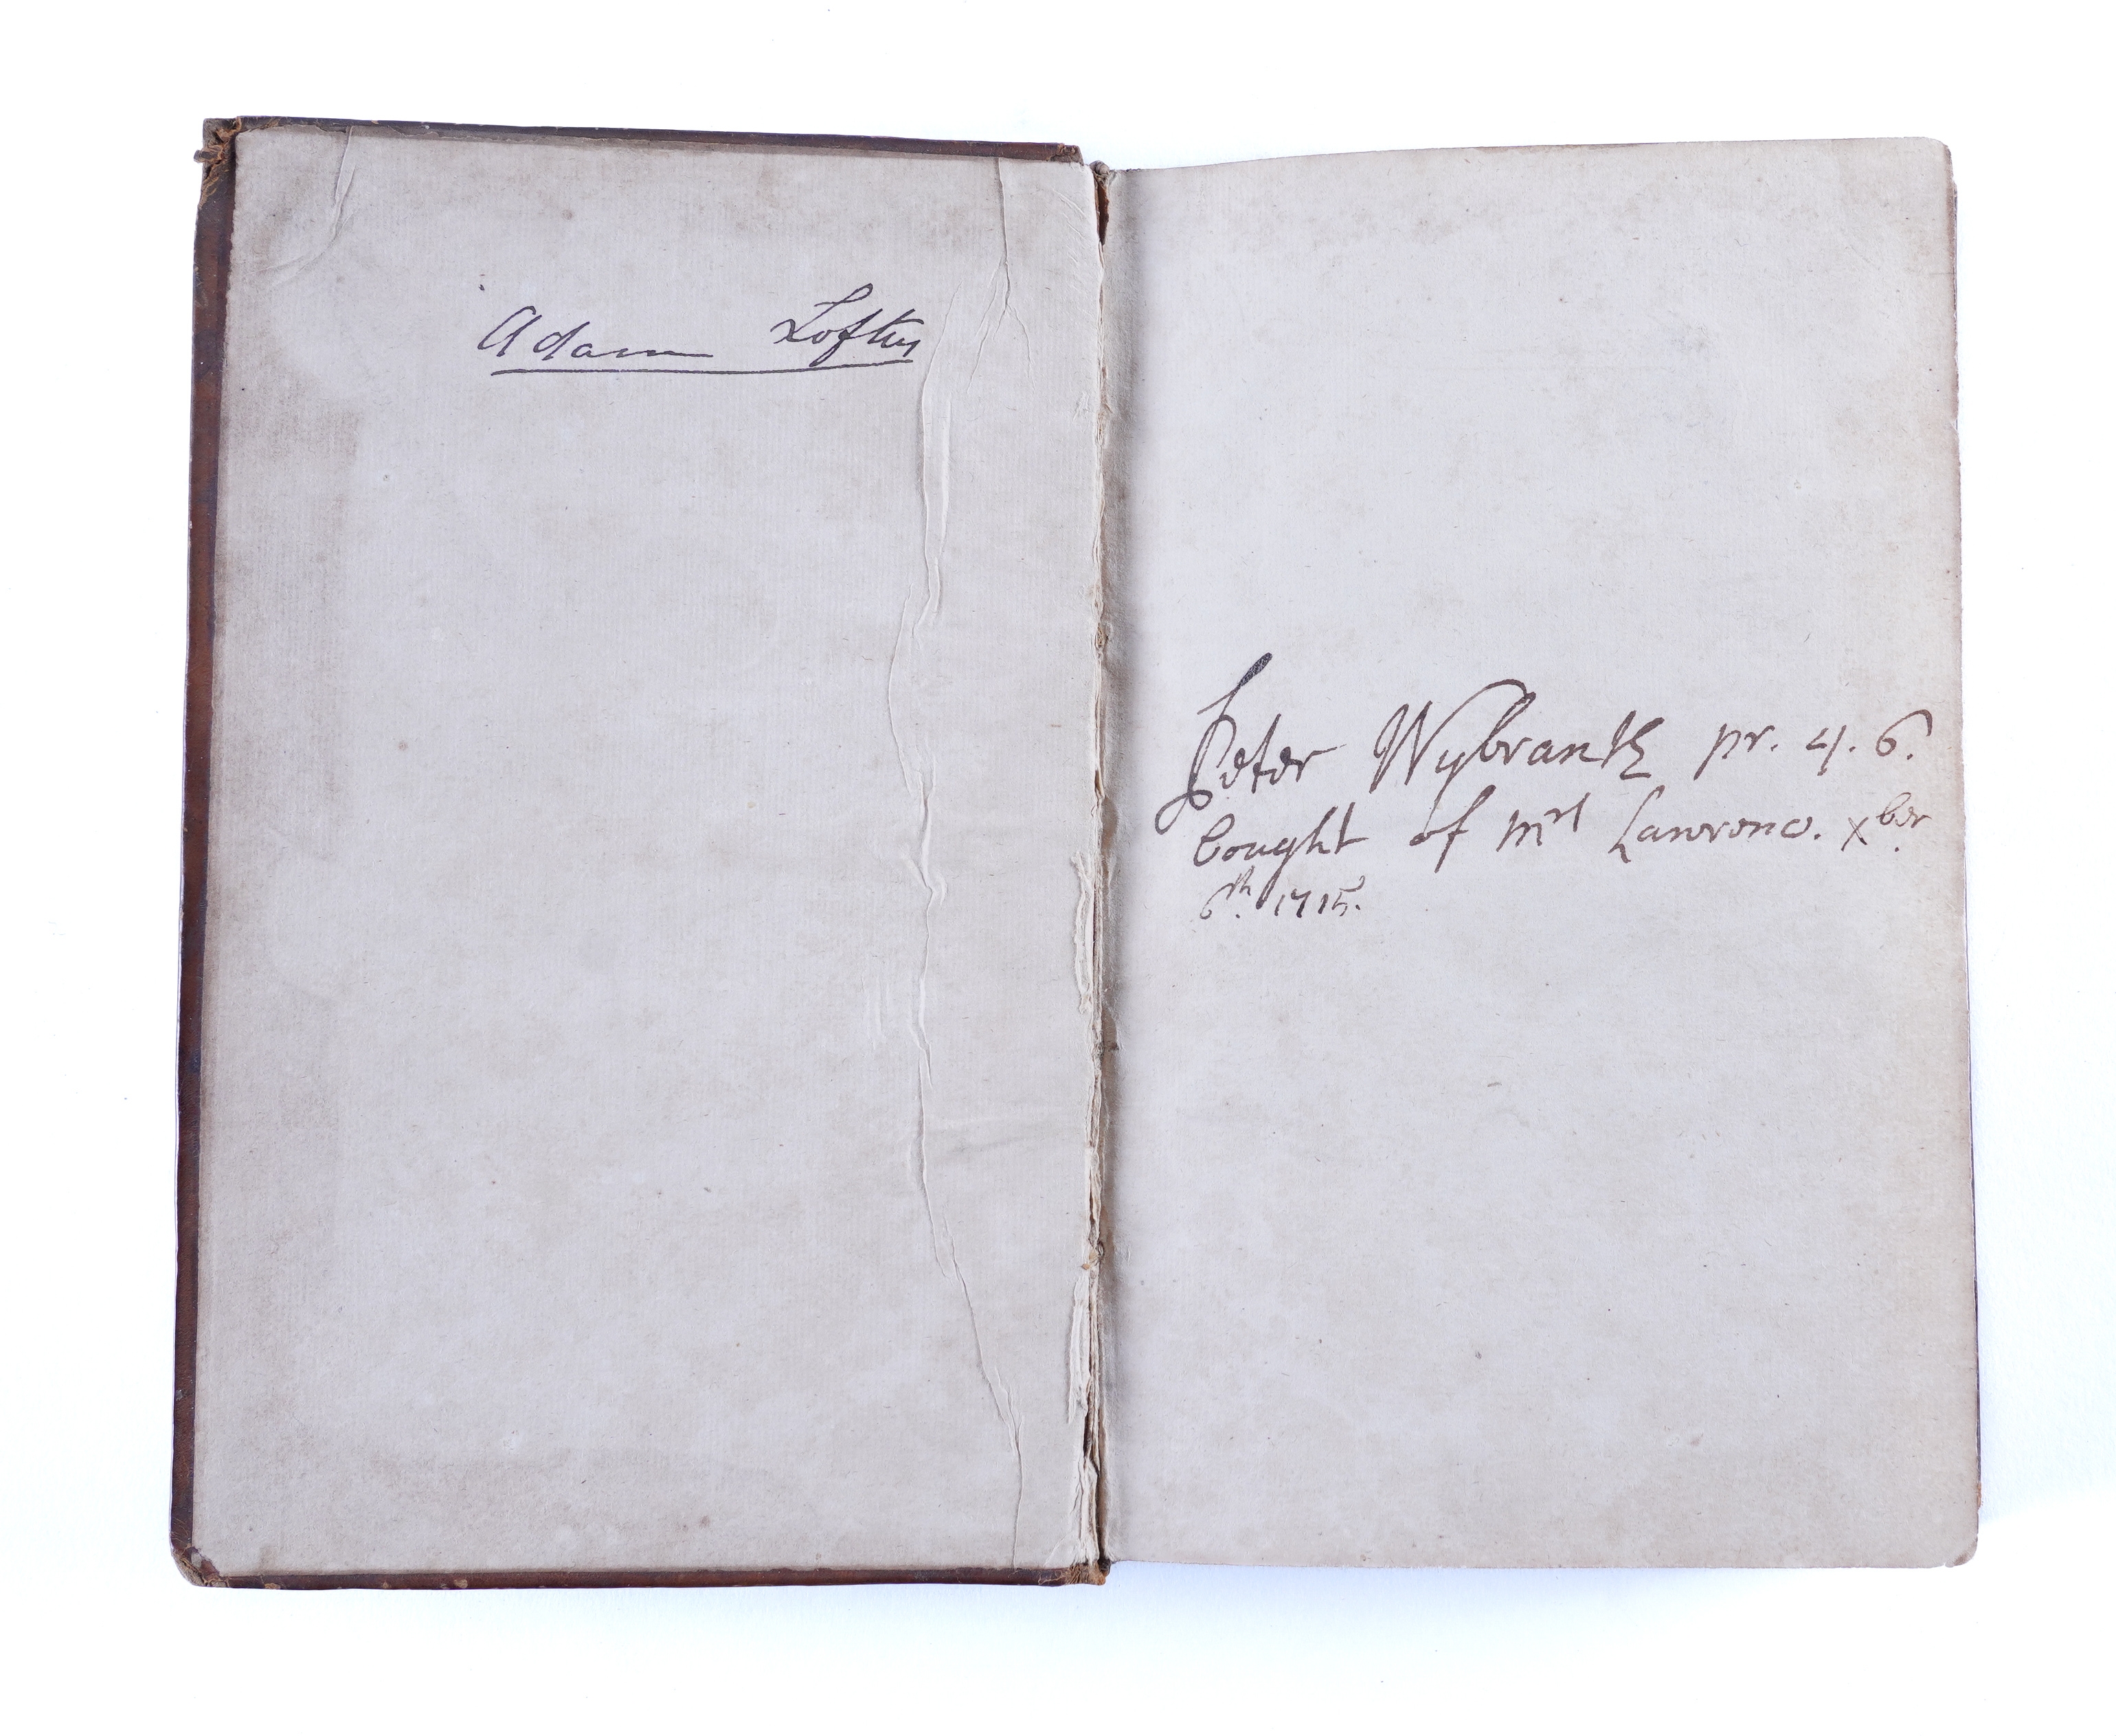 Adam Loftus
Peter Wybrants pr. 4. 6.
bought of Mrs Lawrence. Xber.
6th. 1715.